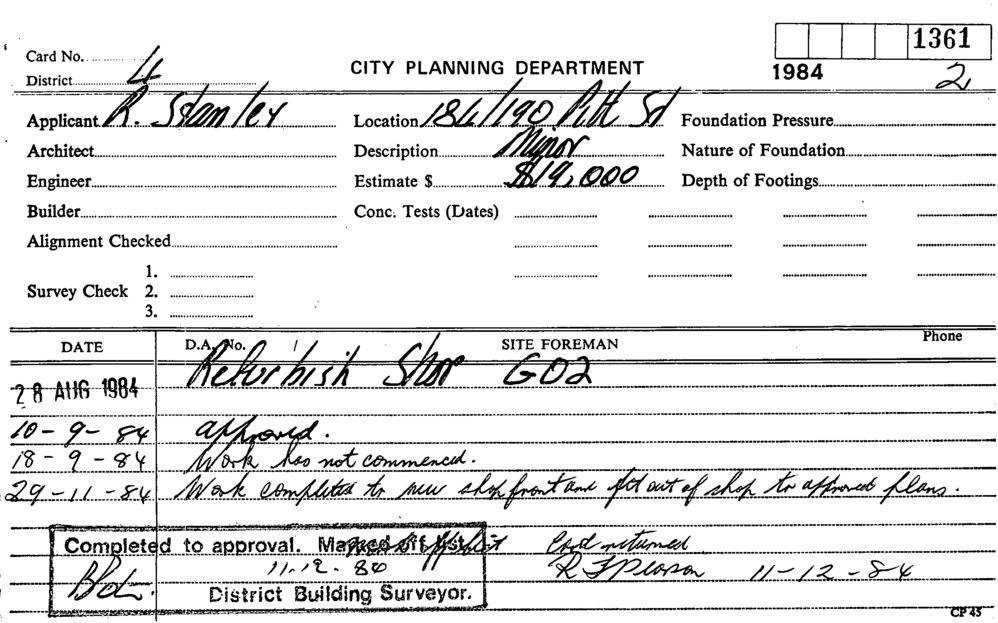 Card No. 4 1361
CITY PLANNING DEPARTMENT
District 1984 2
Applicant R. Stanley Location 184/190 Pitt St Foundation Pressure
Architect Description Minor Nature of Foundation
Engineer Estimate $ $19,000 Depth of Footings
Builder Conc. Tests (Dates)
Alignment Checked
1.
Survey Check 2.
3.
DATE D.A. No. SITE FOREMAN Phone
28 AUG 1984 Refurbish Shop G02
10-9-84 approved.
18-9-84 Work has not commenced.
29-11-84 Work completed to new shopfront and fit out of shop to approved plans.
Completed to approval. Marked off list. Card returned
11.12.84 11-12-84
District Building Surveyor.
CP 45